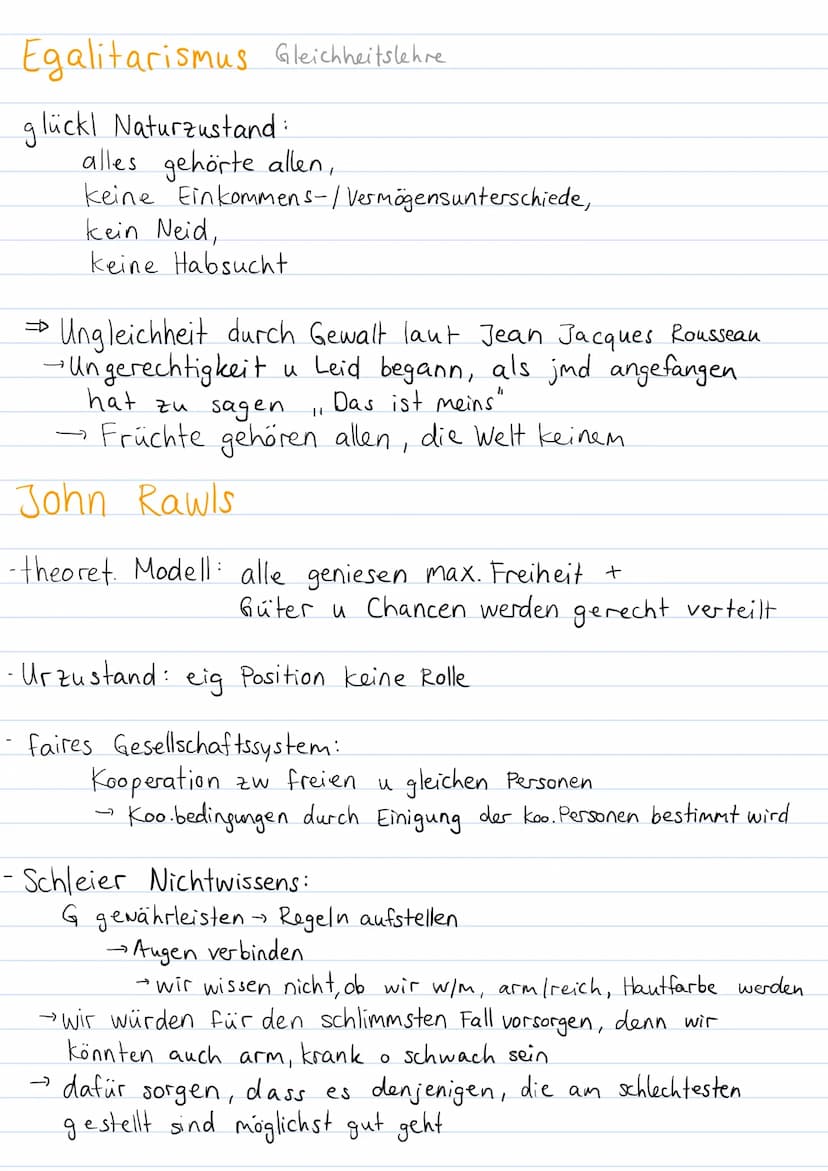 Egalitarismus Gleichheitslehre
glückl Naturzustand:
alles gehörte allen,
keine Einkommens-/Vermögensunterschiede,
kein Neid,
keine Habsucht
⇒ Ungleichheit durch Gewalt laut Jean Jacques Rousseau
→Ungerechtigkeit u Leid begann, als jmd angefangen
hat zu sagen „Das ist meins"
→ Früchte gehören allen, die Welt keinem
John Rawls
-theoret. Modell: alle geniesen max. Freiheit +
Güter u Chancen werden gerecht verteilt
-Urzustand: eig Position keine Rolle
- faires Gesellschaftssystem:
Kooperation zw freien u gleichen Personen
→ Koo.bedingungen durch Einigung der koo.Personen bestimmt wird
- Schleier Nichtwissens:
G gewährleisten → Regeln aufstellen
→Augen verbinden
→wir wissen nicht, ob wir w/m, arm/reich, Hautfarbe werden
→wir würden für den schlimmsten Fall vorsorgen, denn wir
könnten auch arm, krank o schwach sein
→ dafür sorgen, dass es denjenigen, die am schlechtesten
gestellt sind möglichst gut geht